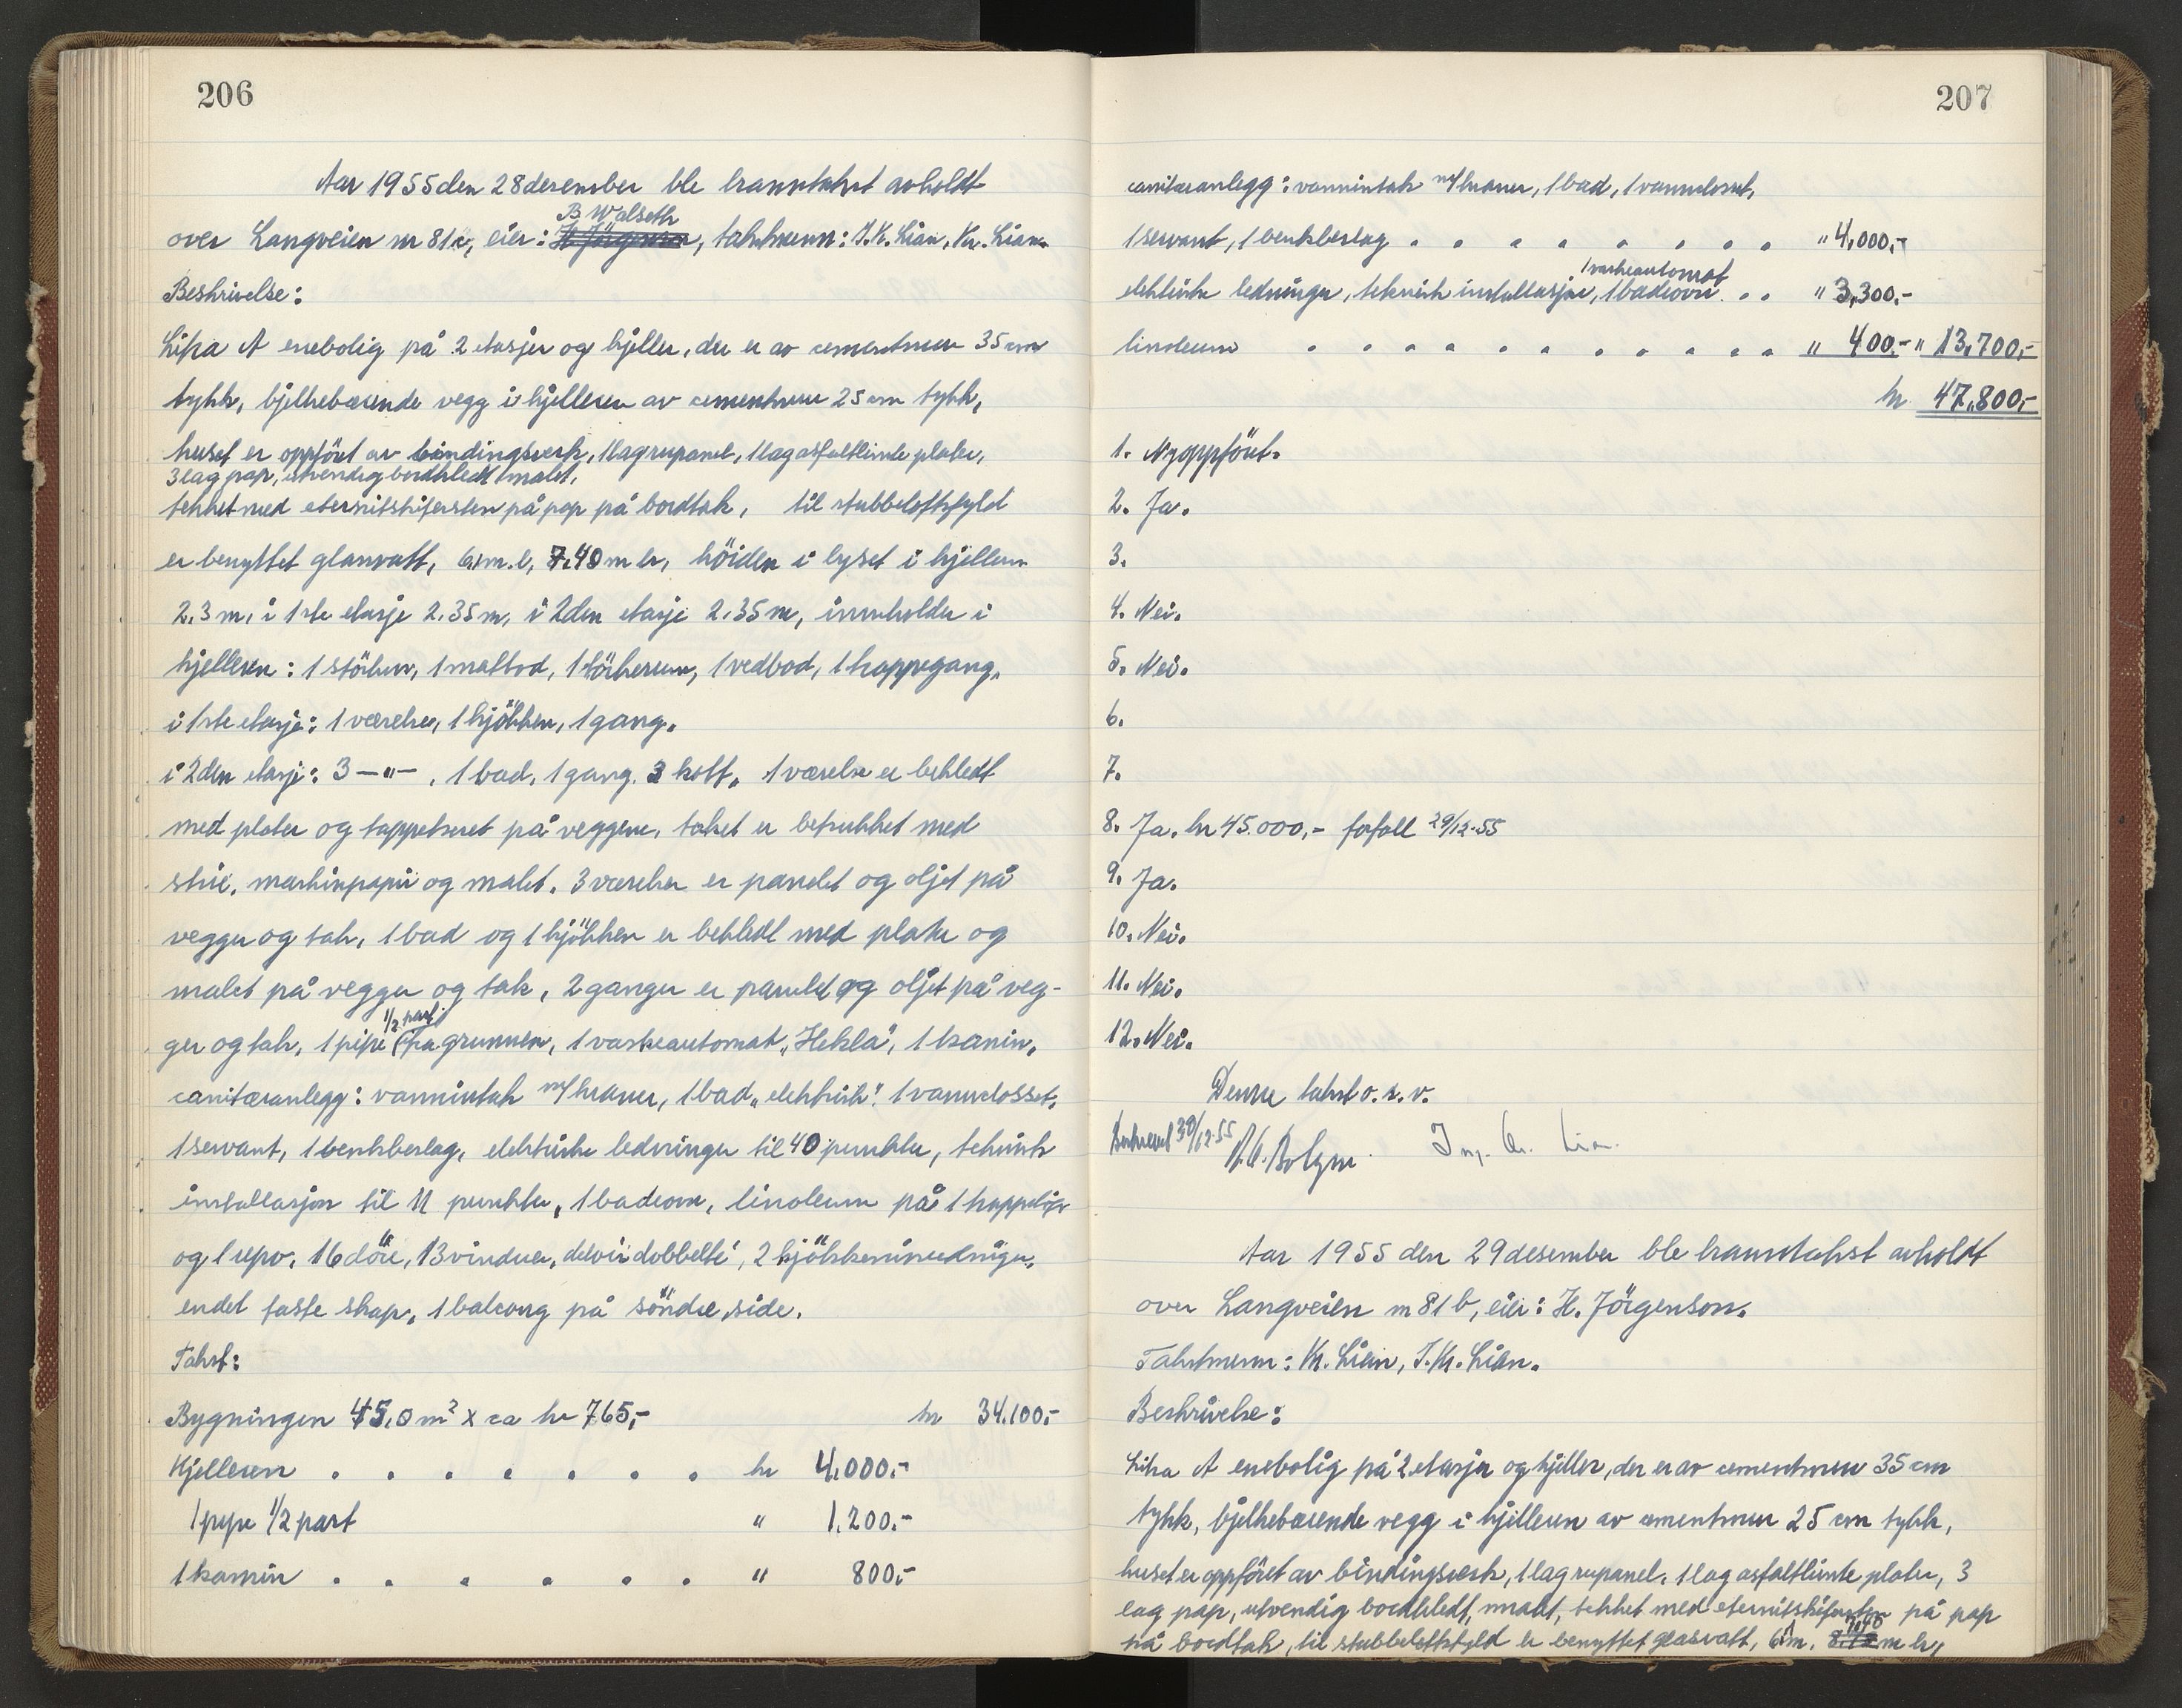 206
Aar 1955 den 28 desember ble branntakst avholdt
B Walseth
over Langveien nr 81c, eier: H Jörgenson, takstmenn: J.Kr. Lian, Kr. Lian.
Beskrivelse:
Litra A enebolig på 2 etasjer og kjeller, der er av cementmur 35 cm
tykk, bjelkebærende vegg i kjelleren av cementmur 25 cm tykk,
huset er oppført av bindingsverk, 1 lag rupanel, 1 lag asfaltlimte plater,
3 lag pap, utvendig bordkledt, malet,
tekket med eternitskifersten på pap på bordtak, til stubbeloftsfyld
er benyttet glasvatt, 6,1 m.l, 7,40 m br, höiden i lyset i kjelleren
2,3 m, i 1ste etasje 2,35 m, i 2den etasje 2,35 m, inneholder i
kjelleren: 1 , 1 matbod, 1 törkerum, 1 vedbod, 1 trappegang.
i 1ste etasje: 1 værelse, 1 kjökken, 1 gang.
i 2den etasje: 3 —"— , 1 bad, 1 gang. 3 kott. 1 værelse er bekledt
med plater og tappetseret på veggene, taket er betrukket med
strie, maskinpapir og malet. 3 værelser er panelet og oljet på
vegger og tak, 1 bad og 1 kjökken er bekledt med plater og
malet på vegger og tak, 2 ganger er panelet og oljet på veg-
1/2 part
ger og tak, 1 pipe fra grunnen, 1 vaskeautomat "Hekla", 1 kamin.
canitæranlegg: vanninntak m/kraner, 1 bad "elektrisk". 1 vannclosset.
1 servant, 1 benkbeslag, elektriske ledninger til 40 punkter, teknisk
installasjon til 11 punkter, 1 badeovn, linoleum på 1 trappelöp
og 1 repo. 16 döre, 13 vinduer, delvis dobbelte, 2 kjökkeninredninger.
endel faste skap. 1 balcong på söndre side.
Takst:
Bygningen 45,0 m² x ca kr 765,- kr 34.100,-
Kjelleren . . . . . . . kr 4.000.-
1 pipe 1/2 part " 1.200.-
1 kamin . . . . . . " 800,-
207
canitæranlegg: vanninntak m/kraner, 1 bad, 1 vannclosset,
1 servant, 1 benkbeslag . . . . . . . . " 4.000,-
1 vaskeautomat
elektriske ledninger, teknisk installasjon, 1 badeovn . . . " 3,300.-
linoleum . . . . . . . . . . " 400.- " 13.700,-
kr 47.800,-
1. Nyoppfört.
2. Ja.
3.
4. Nei.
5. Nei.
6.
7.
8. Ja. kr 45.000,- forfall 29/12-55
9. Ja.
10. Nei.
11. Nei.
12. Nei.
Denne takst o.s.v.
30/12-55 Ing. Kr. Lian.
Aar 1955 den 29 desember ble branntakst avholdt
over Langveien nr 81 b, eier: H. Jörgenson.
Takstmenn: Kr. Lian, J.Kr. Lian.
Beskrivelse:
Litra A enebolig på 2 etasjer og kjeller, der er av cementmur 35 cm
tykk, bjelkebærende vegg i kjelleren av cementmur 25 cm tykk,
huset er oppföret av bindingsverk, 1 lag rupanel, 1 lag asfaltlimte plater, 3
lag pap, utvendig bordkledt, malet, tekket med eternitskifersten på pap
7,40
på bordtak, til stubbeloftsfyld er benyttet glasvatt, 6,1 m. m br,